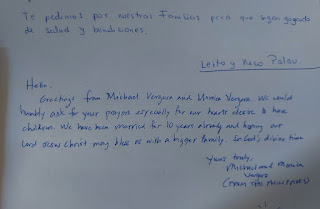 Te pedimos por nuestras familias para que sigan gozando
de salud y bendiciones.
Leito y Palau.
Hello,
Greetings from Michael Vergara and Monica Vergara. We would
humbly ask for your prayers especially for our hearts desire to have
children. We have been married for 10 years already and hoping our
Lord Jesus Christ may bless us with a bigger family. In God's divine time
Yours truly,
Michael and Monica
Vergara
(FROM THE PHILIPPINES)